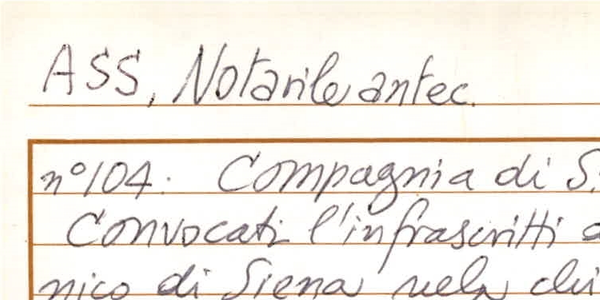 ASS, Notarile antec.
n° 104. Compagnia di S.
Convocati l'infrascritti
nico di Siena nela chi